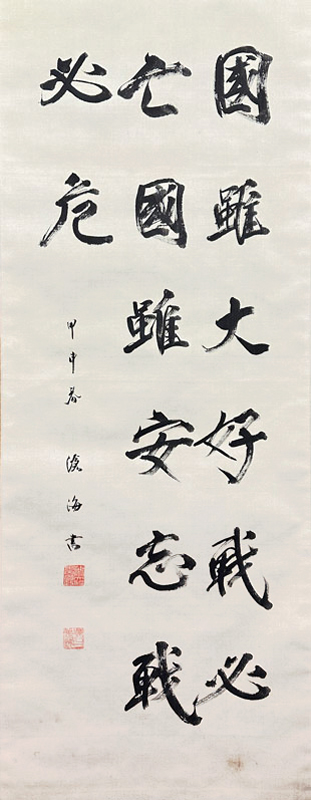 國雖大好戦必
亡國雖安忘戦
必危
甲申春 滄海書